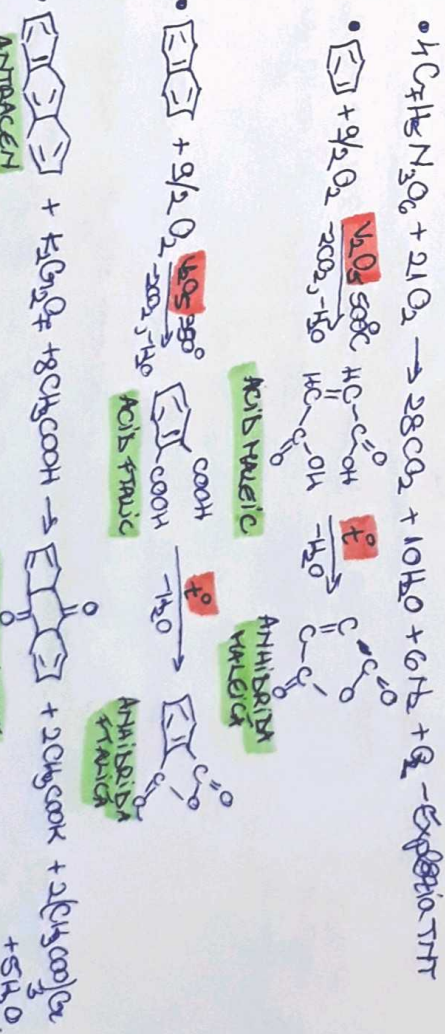 • 4C7H5N3O6 + 21O2 → 28CO2 + 10H2O + 6N2 + O2 - Explozia TNT
• + 9/2O2 V2O5 500°C -2CO2, -H2O HC-C=O OH HC-C=O OH t° -H2O C-C=O O C-C=O
ACID MALEIC ANHIDRIDA MALEICA
• + 9/2O2 V2O5 350° -2CO2, -H2O COOH COOH t° -H2O C=O O C=O
ACID FTALIC ANHIDRIDA FTALICA
• + K2Cr2O7 + 8CH3COOH → O O + 2CH3COOK + 2(CH3COO)3Cr + 5H2O
ANTRACEN